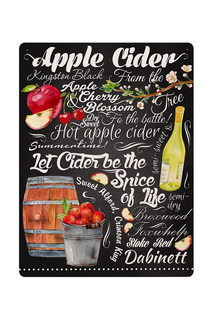 Apple Cider
Kingston Black
From the
Tree
Apple
& Cherry
Blossom
Dry
Sweet
To the bottle!
Hot apple cider
Summertime!
semi-sweet &
Let Cider be the
Spice
of Life
semi-
dry
Sweet Alford, Crimson King
Broxwood
Foxwhelp
Stoke Red
Dabinett